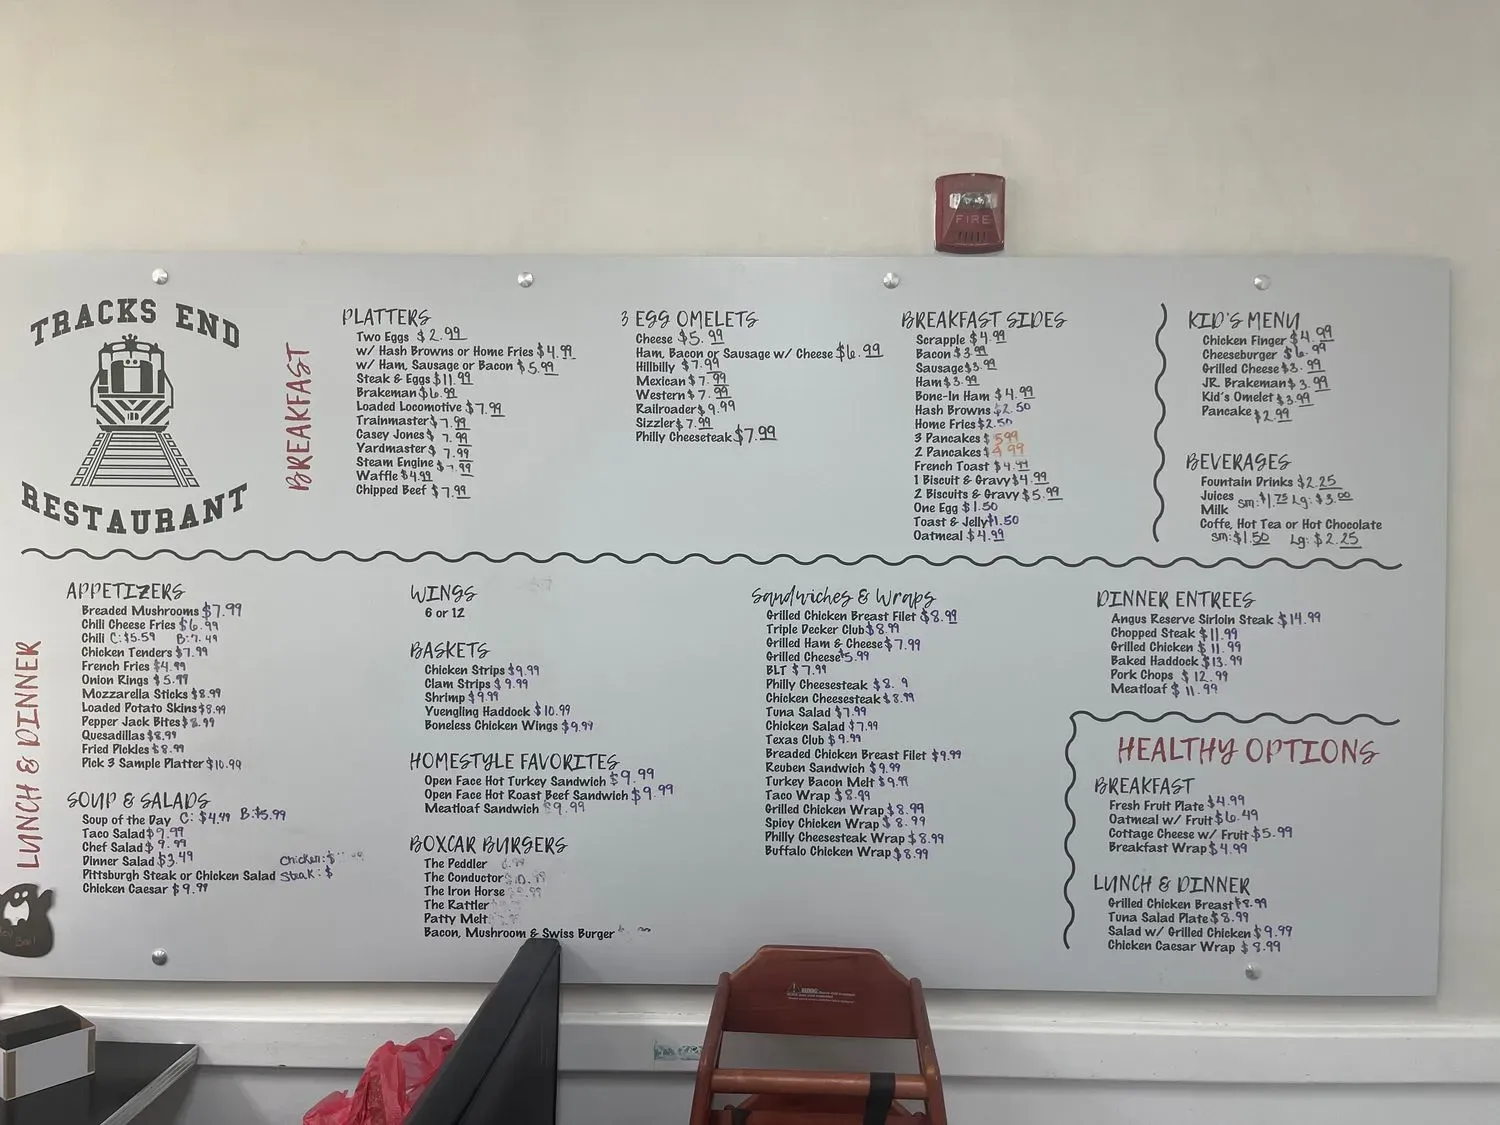 FIRE
TRACKS END
RESTAURANT
BREAKFAST
PLATTERS
Two Eggs $2.99
w/ Hash Browns or Home Fries $4.99
w/ Ham, Sausage or Bacon $5.99
Steak & Eggs $11.99
Brakeman $6.99
Loaded Locomotive $7.99
Trainmaster $7.99
Casey Jones $7.99
Yardmaster $7.99
Steam Engine $7.99
Waffle $4.99
Chipped Beef $7.99
3 EGG OMELETS
Cheese $5.99
Ham, Bacon or Sausage w/ Cheese $6.99
Hillbilly $7.99
Mexican $7.99
Western $7.99
Railroader $9.99
Sizzler $7.99
Philly Cheeseteak $7.99
BREAKFAST SIDES
Scrapple $4.99
Bacon $3.99
Sausage $3.99
Ham $3.99
Bone-In Ham $4.99
Hash Browns $2.50
Home Fries $2.50
3 Pancakes $5.99
2 Pancakes $4.99
French Toast $4.99
1 Biscuit & Gravy $4.99
2 Biscuits & Gravy $5.99
One Egg $1.50
Toast & Jelly $1.50
Oatmeal $4.99
KID'S MENU
Chicken Finger $4.99
Cheeseburger $6.99
Grilled Cheese $3.99
JR. Brakeman $3.99
Kid's Omelet $3.99
Pancake $2.99
BEVERAGES
Fountain Drinks $2.25
Juices sm:$1.75 Lg: $3.00
Milk
Coffe, Hot Tea or Hot Chocolate
sm:$1.50 Lg: $2.25
LUNCH & DINNER
APPETIZERS
Breaded Mushrooms $7.99
Chili Cheese Fries $6.99
Chili C:$5.59 B:7.49
Chicken Tenders $7.99
French Fries $4.99
Onion Rings $5.99
Mozzarella Sticks $8.99
Loaded Potato Skins $8.99
Pepper Jack Bites $8.99
Quesadillas $8.99
Fried Pickles $8.99
Pick 3 Sample Platter $10.99
SOUP & SALADS
Soup of the Day C: $4.99 B:$5.99
Taco Salad $9.99
Chef Salad $9.99
Dinner Salad $3.49 Chicken:$
Pittsburgh Steak or Chicken Salad Steak:$
Chicken Caesar $9.99
WINGS
6 or 12
BASKETS
Chicken Strips $9.99
Clam Strips $9.99
Shrimp $9.99
Yuengling Haddock $10.99
Boneless Chicken Wings $9.99
HOMESTYLE FAVORITES
Open Face Hot Turkey Sandwich $9.99
Open Face Hot Roast Beef Sandwich $9.99
Meatloaf Sandwich $9.99
BOXCAR BURGERS
The Peddler
The Conductor
The Iron Horse
The Rattler
Patty Melt
Bacon, Mushroom & Swiss Burger
Sandwiches & Wraps
Grilled Chicken Breast Filet $8.99
Triple Decker Club $8.99
Grilled Ham & Cheese $7.99
Grilled Cheese $5.99
BLT $7.99
Philly Cheesesteak $8. 9
Chicken Cheesesteak $8.99
Tuna Salad $7.99
Chicken Salad $7.99
Texas Club $9.99
Breaded Chicken Breast Filet $9.99
Reuben Sandwich $9.99
Turkey Bacon Melt $9.99
Taco Wrap $8.99
Grilled Chicken Wrap $8.99
Spicy Chicken Wrap $8.99
Philly Cheesesteak Wrap $8.99
Buffalo Chicken Wrap $8.99
DINNER ENTREES
Angus Reserve Sirloin Steak $14.99
Chopped Steak $11.99
Grilled Chicken $11.99
Baked Haddock $13.99
Pork Chops $12.99
Meatloaf $11.99
HEALTHY OPTIONS
BREAKFAST
Fresh Fruit Plate $4.99
Oatmeal w/ Fruit $6.49
Cottage Cheese w/ Fruit $5.99
Breakfast Wrap $4.99
LUNCH & DINNER
Grilled Chicken Breast $8.99
Tuna Salad Plate $8.99
Salad w/ Grilled Chicken $9.99
Chicken Caesar Wrap $8.99
WARNING